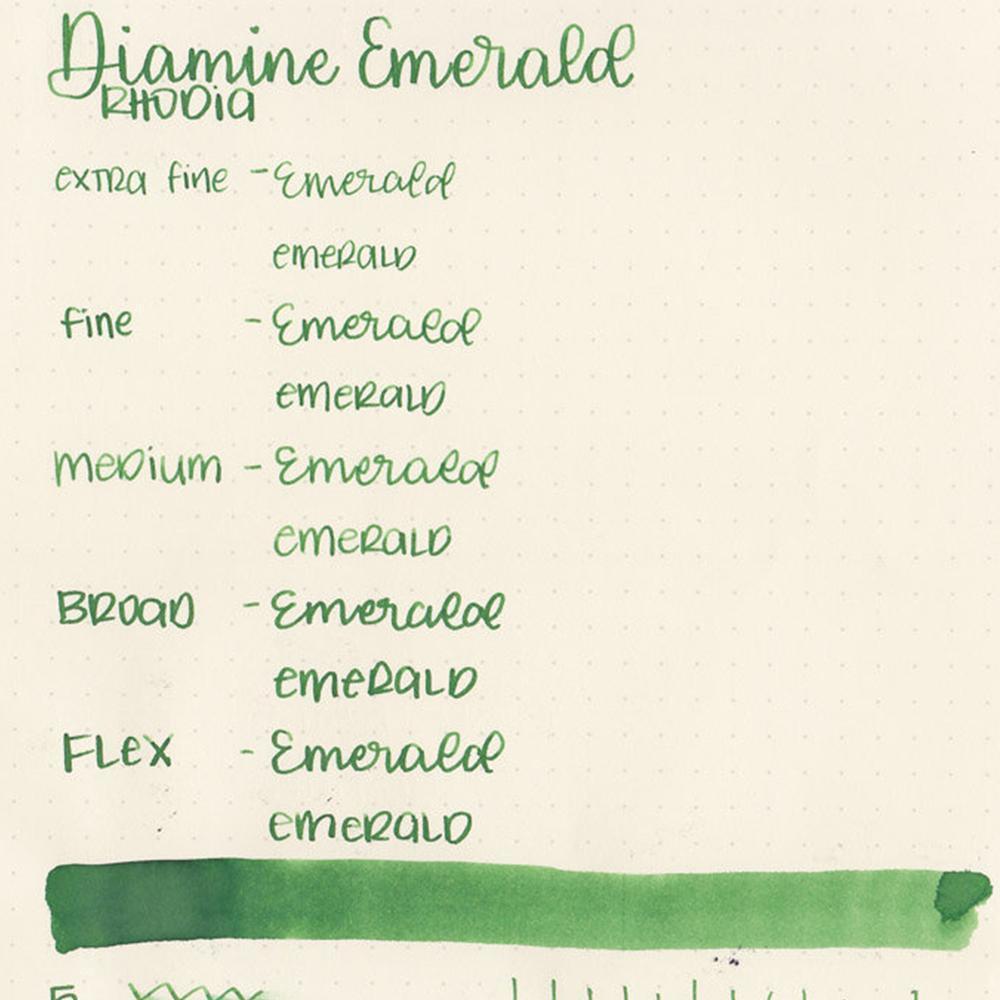 Diamine Emerald
RHODIA
extra fine - Emerald
emerald
fine - Emerald
emerald
medium - Emerald
emerald
Broad - Emerald
emerald
Flex - Emerald
emerald
5